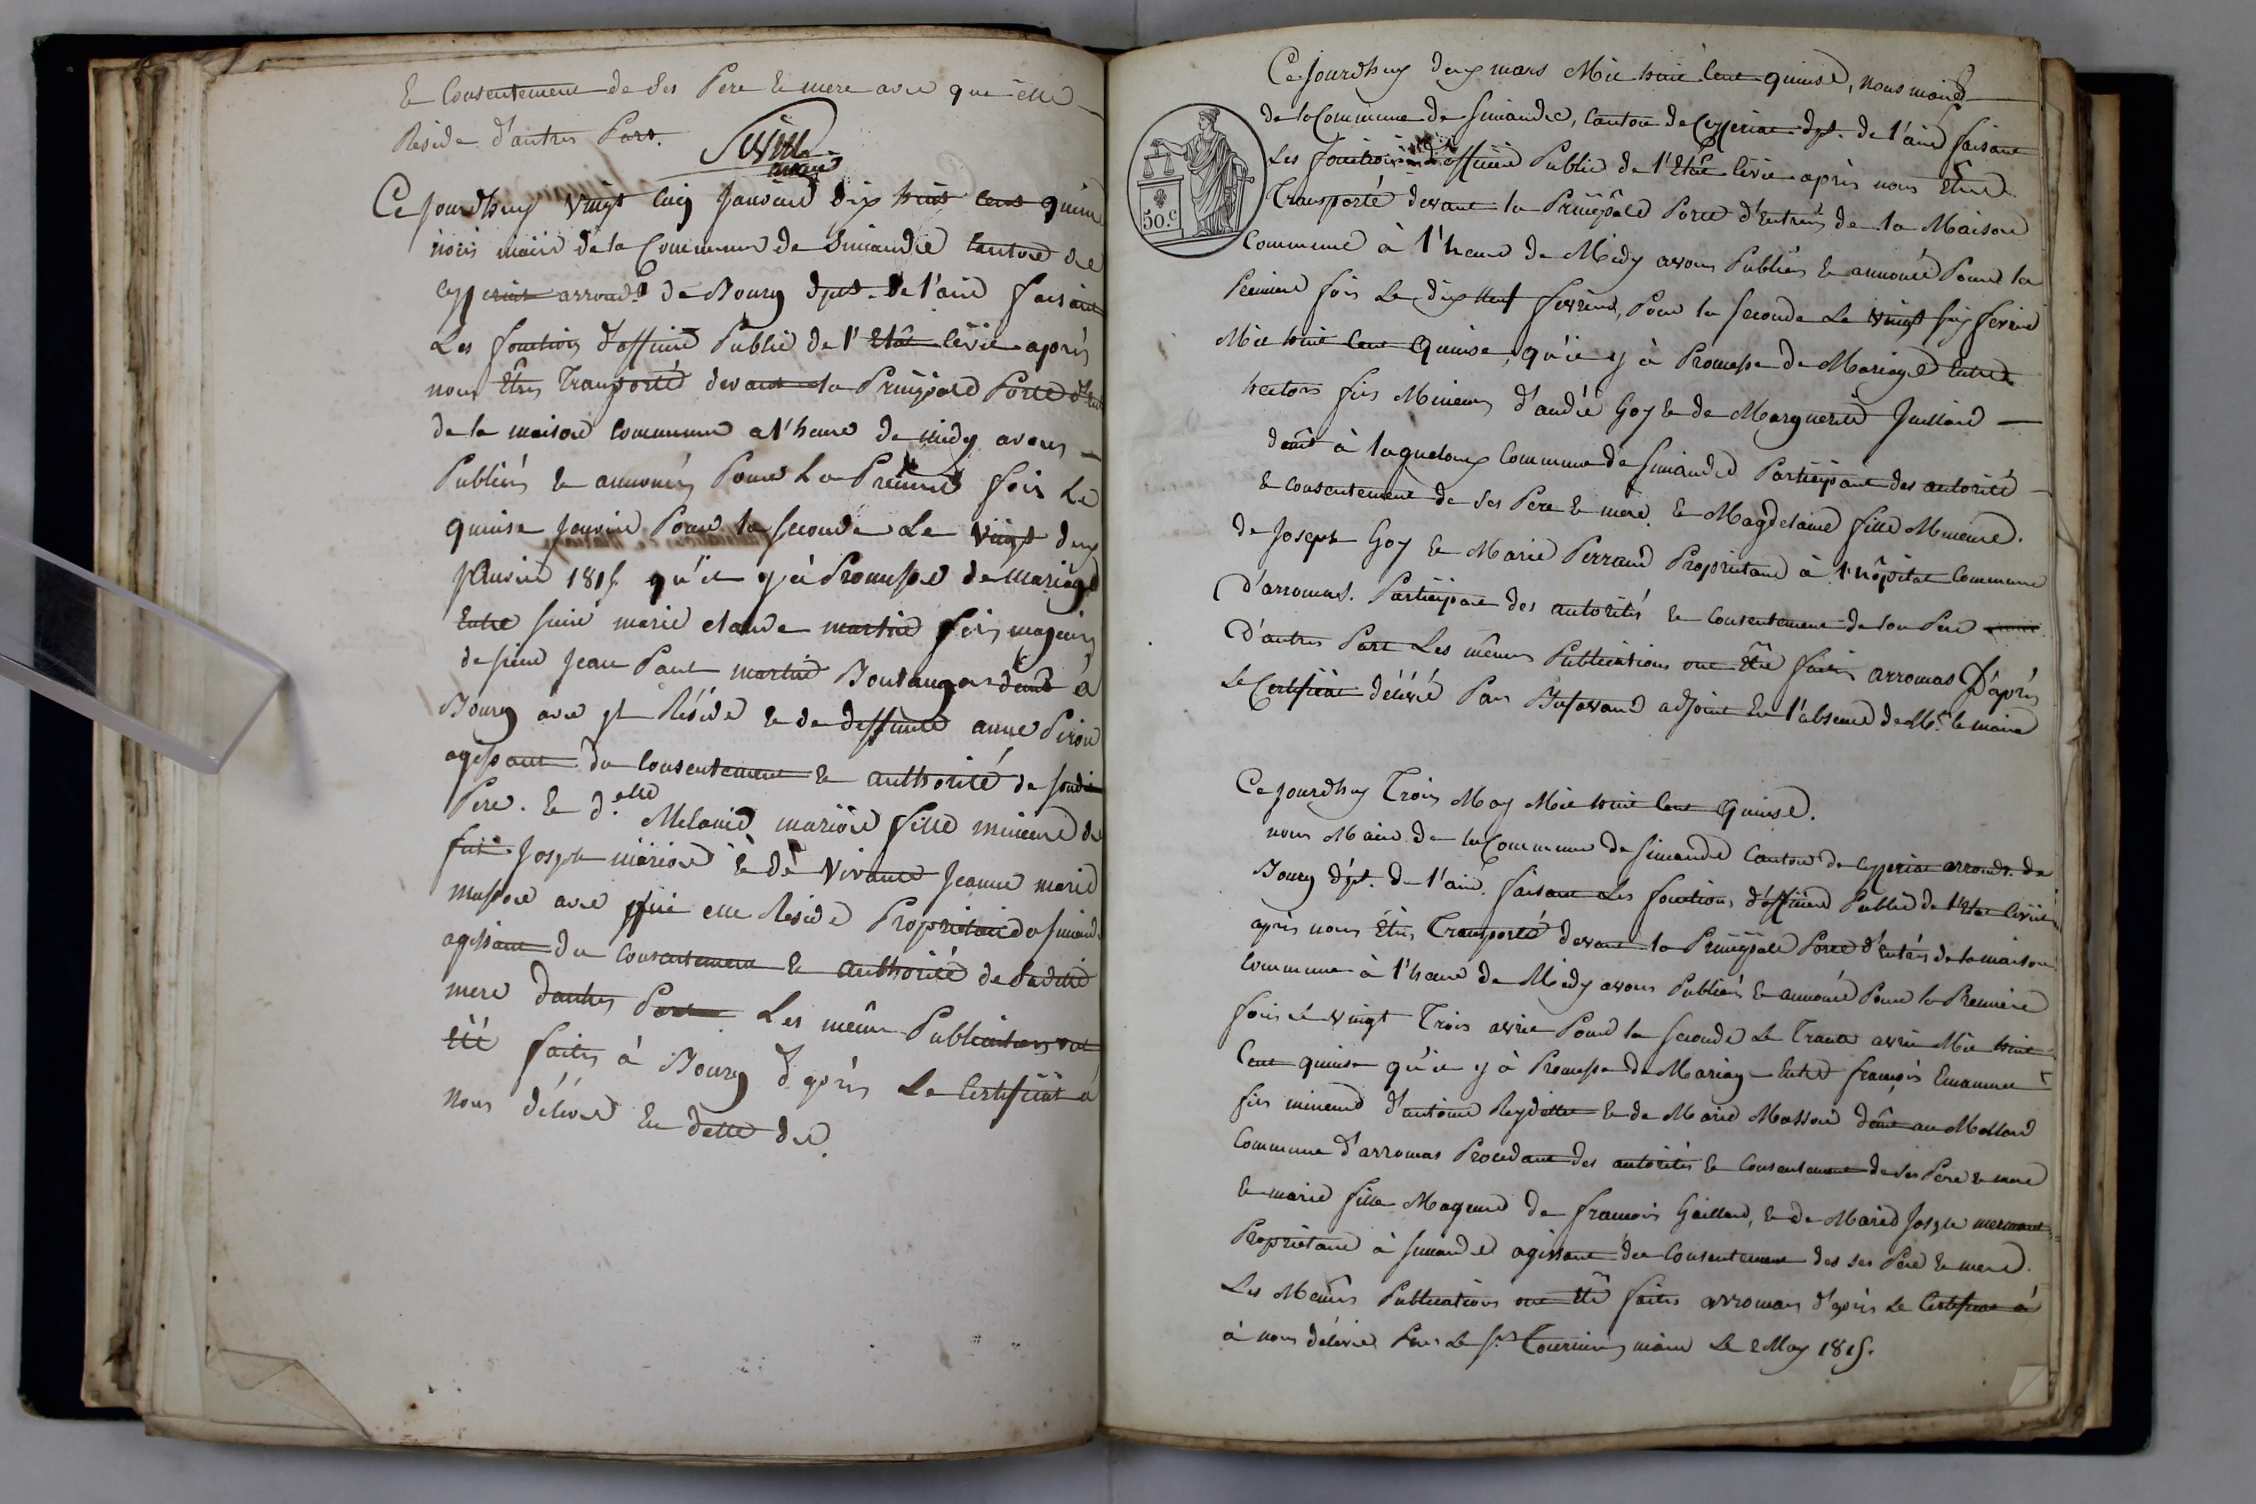 & Consentement de ses Pere & mere avec qui elle
Reside d'autres Part.
Ce Jourdhuy vingt Cinq Janvier dix huit cent quinze
nous maire de la Commune de Simandre Canton de
Ceyzeriat arrond.t de Bourg dpt. de l'ain faisant
Les fonctions d'officier Public de l'Etât Civil après
nous Etres Transporté devant la Principale Porte d'Entré
de la maison commune a l'heure de midy avons
Publiés & annoncés Pour La Premiere fois Le
quinze Janvier Pour la seconde Le vingt deux
Janvier 1815 qu'il y à Promesse de mariage
Entre sieur marie claude martin fils majeur
de sieur Jean Paul martin Boulanger demt à
Bourg avec Reside & de deffunte anne
agissant du Consentement & authorité de sondit
Pere. & d.elle Melanie fille mineure de
fut Joseph & de vivante Jeanne marie
avec qui elle Reside Proprietaire a Simandre
agissant du Consentement & authorité de Ladite
mere d'autres Part. Les même Publications ont
Eté faites à Bourg d'après Le Certificat à
nous délivré En datte du
Ce Jourdhuy deux mars Mil huit Cent quinze, nous maire
de la Commune de Simandre, Canton de Ceyzeriat dpt. de l'ain faisant
Les fonctions d'officier Public de l'Etât Civil après nous Être
Transporté devant la Principale Porte d'Entrés de la Maison
50.c
Commune à l'heure de Midy avons Publiés & annoncé Pour la
Premiere fois Le dix neuf fevrier, Pour la seconde Le vingt six fevrier
Mil huit Cent Quinze, qu'il y à Promesse de Mariage Entre
hector fils Mineur d'andré Goy & de Marguerite Juillard
demt à Commune de Simandre Participant des autorité
& consentement de ses Pere & mere. & Magdelaine fille Mineure.
de Joseph Goy & Marie Perraud Proprietaire à l'hôpital Commune
d'arromas. Participant des autorités & Consentement de son Pere
D'autres Part Les mêmes Publications ont Été faites arromas D'après
Le Certificat délivré Par adjoint En l'absence de Mr. le maire
Ce Jourdhuy Trois May Mil huit Cent Quinse.
nous Maire de la Commune de Simandre Canton de Ceyzeriat arrondt. de
Bourg dpt. de l'ain. faisant Les fonctions d'officier Public de l'Etat Civil
après nous Êtres Transporté devant la Principale Porte d'Entrés de la maison
Commune à l'heure de Midy avons Publiés & annoncé Pour la Premiere
fois Le vingt Trois avril Pour la seconde Le Trante avril Mil huit
Cent quinse qu'il y à Promesse de Mariage Entre françois Emanuel
fils mineur d'antoine Reydellet & de Marie Masson demt au Mollard
Commune d'arromas Procedant des autorités & Consentement de ses Pere & mere
& marie fille Mageure de francois Gaillard, & de Marie Josephe mermant
Proprietaire à Simandre agissant du Consentement des ses Pere & mere.
Les Mêmes Publications ont Été faites arromas d'après Le Certificat à
à nous délivré Par Le Sr. Tournier maire Le 2 May 1815.